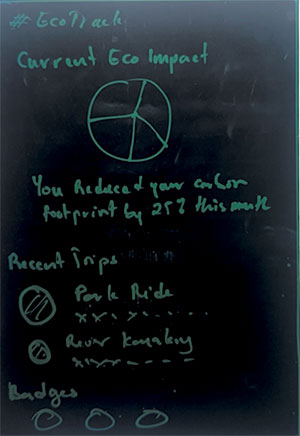 # EcoTrack
Current Eco Impact
You Reduced your carbon
footprint by 25% this month
Recent Trips
Park Ride
River Kayaking
Badges